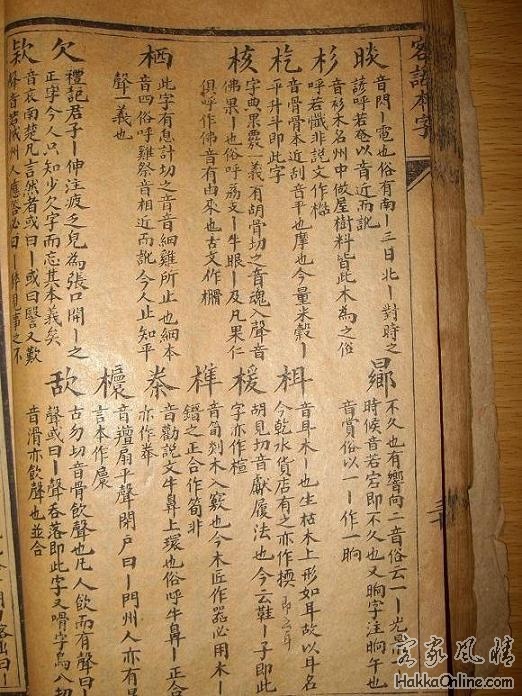 客話本字
睒
音閃丨電也俗有南丨三日北丨對時之
諺呼若以音近而訛
曏
不久也有響向二音俗云一丨光景
時候音若宕即不久也又晌字注晌午也
音賞俗以一丨作一晌
杉
音衫木名州中做屋樹料皆此木為之俗
呼若懺非說文作
杚
音骨骨本近刮音平也摩也今量米穀丨
平升斗即此字
栮
音耳木丨也生枯木上形如耳故以耳名
今乾水貨店有之亦作檽
核
字典果覈一義有胡骨切之音魂入聲音
佛果丨也俗呼荔支丨牛眼丨及凡果仁
俱呼作佛音有由來也古文作
楥
胡見切音獻履法也今云鞋丨子即此
字亦作楦
榫
音筍剡木入竅也今木匠作器必用木
之正合作筍非
栖
此字有息計切之音音細雞所止也細本
音四俗呼雞祭音相近而訛今人止知平
聲義也
桊
音勸說文牛鼻上環也俗呼牛鼻丨正合
亦作
音羶扇平聲閉戶曰丨門州人亦有是
言本作
欠
禮記君子丨伸注疲乏皃為張口開丨之
正字今人只知少欠字而忘其本義矣
古勿切音骨飲聲也凡人飲而有聲曰丨
聲或曰丨聲吞落即此字又嗗字烏八切
音滑亦飲聲也並合
欵
音哀南楚凡言然者或曰丨或曰譍又歎
聲音若州人應答必曰丨
HakkaOnline.com
客家風情